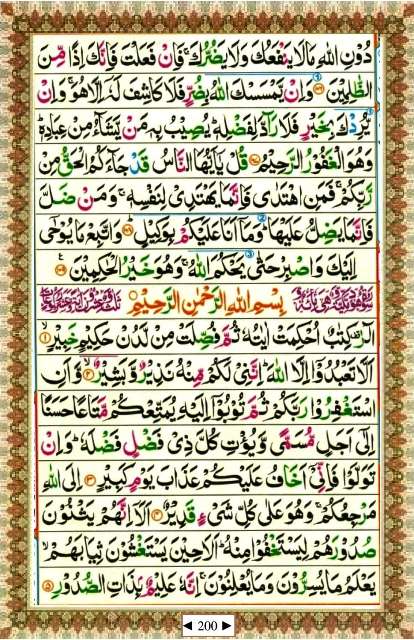 دُوْنِ اللّٰهِ مَا لَا يَنْفَعُكَ وَلَا يَضُرُّكَ ۚ فَاِنْ فَعَلْتَ فَاِنَّكَ اِذًا مِّنَ
الظّٰلِمِيْنَ ﴿۱۰۶﴾ وَاِنْ يَّمْسَسْكَ اللّٰهُ بِضُرٍّ فَلَا كَاشِفَ لَهٗۤ اِلَّا هُوَ ۚ وَاِنْ
يُّرِدْكَ بِخَيْرٍ فَلَا رَآدَّ لِفَضْلِهٖ ؕ يُصِيْبُ بِهٖ مَنْ يَّشَآءُ مِنْ عِبَادِهٖ ؕ
وَهُوَ الْغَفُوْرُ الرَّحِيْمُ ﴿۱۰۷﴾ قُلْ يٰۤاَيُّهَا النَّاسُ قَدْ جَآءَكُمُ الْحَقُّ مِنْ
رَّبِّكُمْ ۚ فَمَنِ اهْتَدٰى فَاِنَّمَا يَهْتَدِىْ لِنَفْسِهٖ ۚ وَمَنْ ضَلَّ
فَاِنَّمَا يَضِلُّ عَلَيْهَا ۚ وَمَاۤ اَنَا عَلَيْكُمْ بِوَكِيْلٍ ﴿۱۰۸﴾ وَاتَّبِعْ مَا يُوْحٰۤى
اِلَيْكَ وَاصْبِرْ حَتّٰى يَحْكُمَ اللّٰهُ ۚ وَهُوَ خَيْرُ الْحٰكِمِيْنَ ﴿۱۰۹﴾
بِسْمِ اللّٰهِ الرَّحْمٰنِ الرَّحِيْمِ
الٓرٰ ۚ كِتٰبٌ اُحْكِمَتْ اٰيٰتُهٗ ثُمَّ فُصِّلَتْ مِنْ لَّدُنْ حَكِيْمٍ خَبِيْرٍ ﴿۱﴾
اَلَّا تَعْبُدُوْۤا اِلَّا اللّٰهَ ؕ اِنَّنِىْ لَكُمْ مِّنْهُ نَذِيْرٌ وَّبَشِيْرٌ ﴿۲﴾ وَّاَنِ
اسْتَغْفِرُوْا رَبَّكُمْ ثُمَّ تُوْبُوْۤا اِلَيْهِ يُمَتِّعْكُمْ مَّتَاعًا حَسَنًا
اِلٰۤى اَجَلٍ مُّسَمًّى وَّيُؤْتِ كُلَّ ذِىْ فَضْلٍ فَضْلَهٗ ؕ وَاِنْ
تَوَلَّوْا فَاِنِّىْۤ اَخَافُ عَلَيْكُمْ عَذَابَ يَوْمٍ كَبِيْرٍ ﴿۳﴾ اِلَى اللّٰهِ
مَرْجِعُكُمْ ۚ وَهُوَ عَلٰى كُلِّ شَىْءٍ قَدِيْرٌ ﴿۴﴾ اَلَاۤ اِنَّهُمْ يَثْنُوْنَ
صُدُوْرَهُمْ لِيَسْتَخْفُوْا مِنْهُ ؕ اَلَا حِيْنَ يَسْتَغْشُوْنَ ثِيَابَهُمْ ۙ
يَعْلَمُ مَا يُسِرُّوْنَ وَمَا يُعْلِنُوْنَ ۚ اِنَّهٗ عَلِيْمٌۢ بِذَاتِ الصُّدُوْرِ ﴿۵﴾
◄ 200 ►